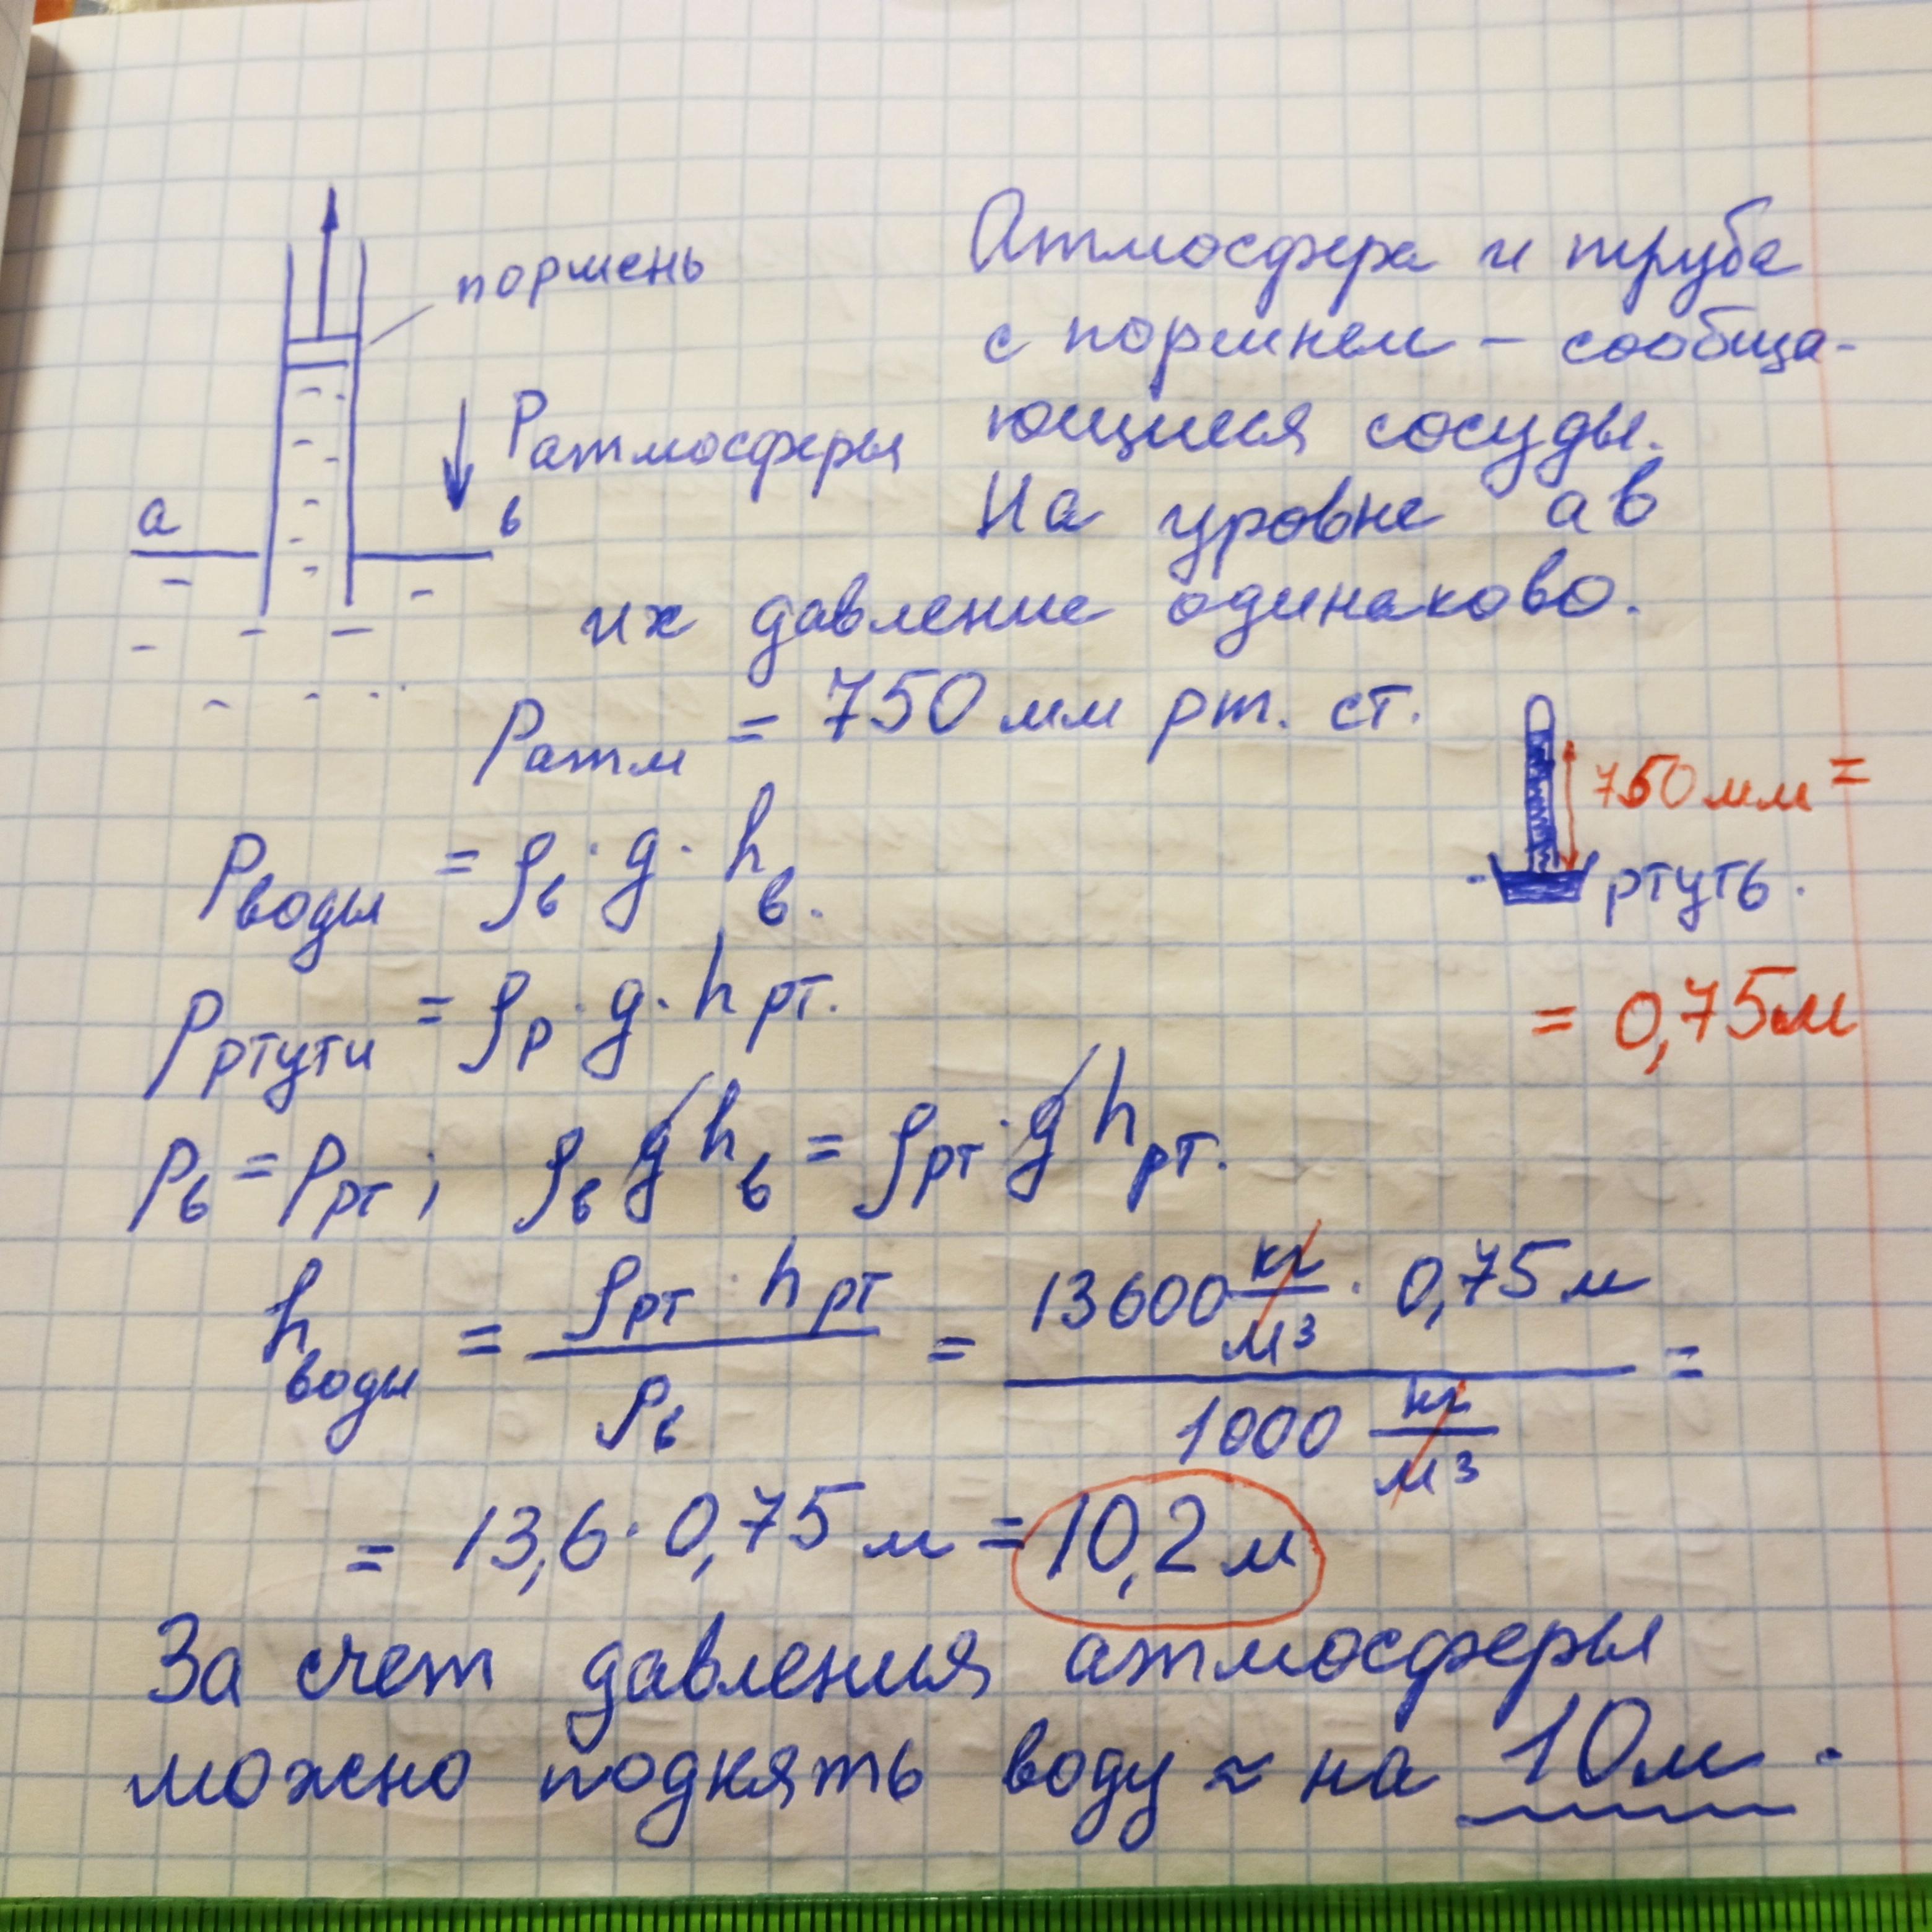 поршень
Атмосфера и труба
с поршнем – сообща-
ющиеся сосуды.
Pатмосферы
а
в
На уровне ав
их давление одинаково.
Pатм = 750 мм рт. ст.
750 мм =
ртуть.
= 0,75м
Pводы = ρв · g · hв.
Pртути = ρр · g · hрт.
Pв = Pрт ; ρв g hв = ρрт · g hрт.
hводы = ρрт · hрт / ρв = 13600 кг/м³ · 0,75 м / 1000 кг/м³ =
= 13,6 · 0,75 м = 10,2 м
За счет давления атмосферы
можно поднять воду ≈ на 10м.